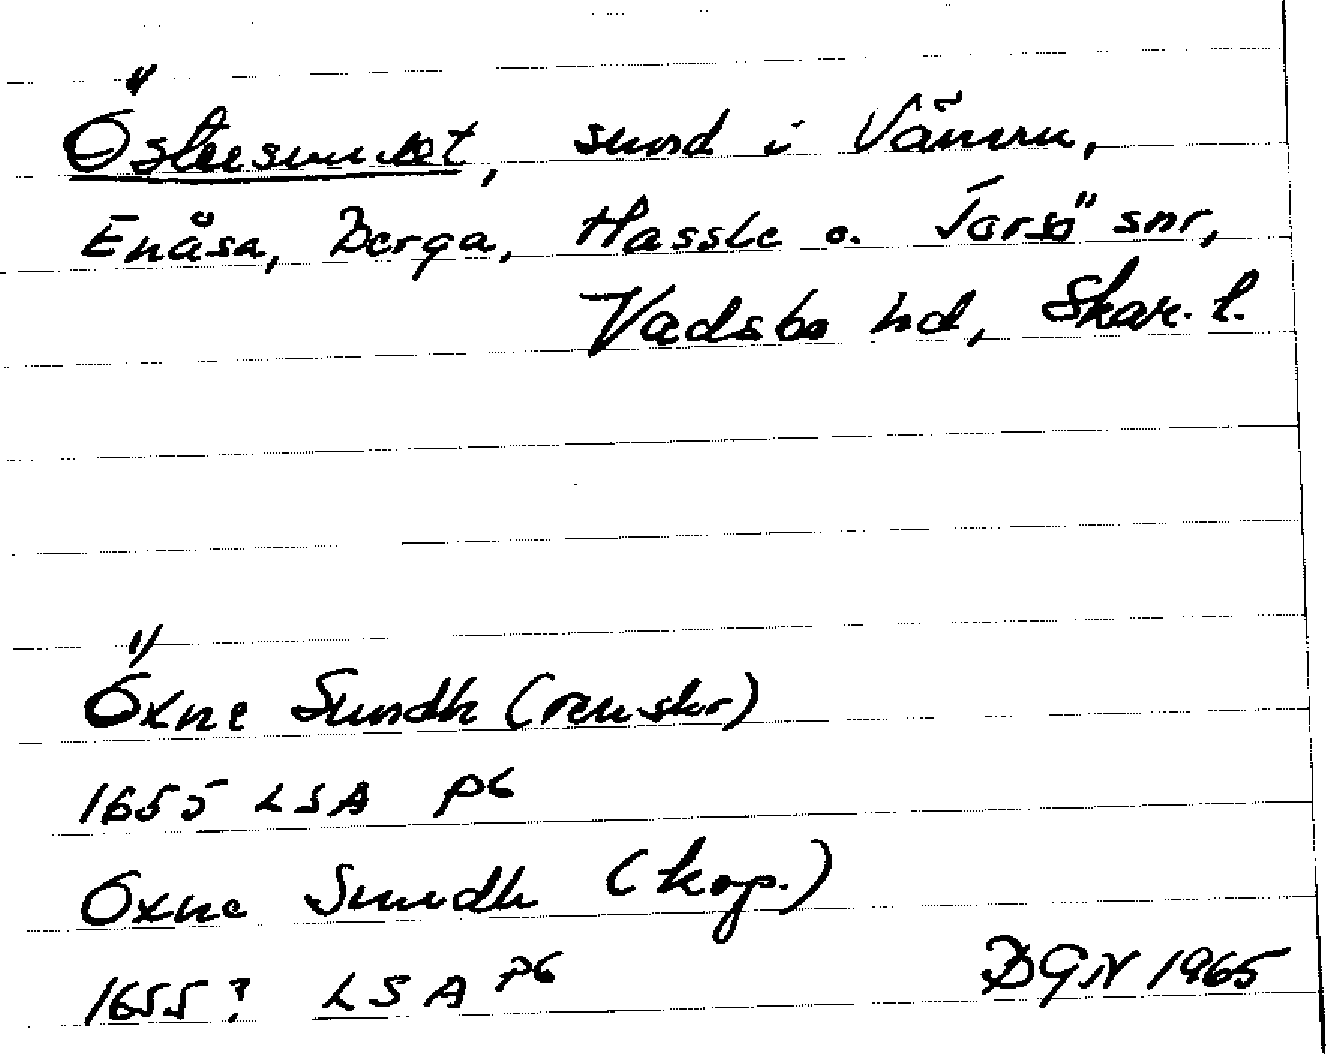 Östersundet, sund i Vänern,
Enåsa, Berga, Hassle o. Torsö snr,
Vadsbo hd, Skar. l.
Öxne Sundh (renskr)
1655 LSA P6
Öxne Sundh (kop.)
1655? LSA P6
DGN 1965